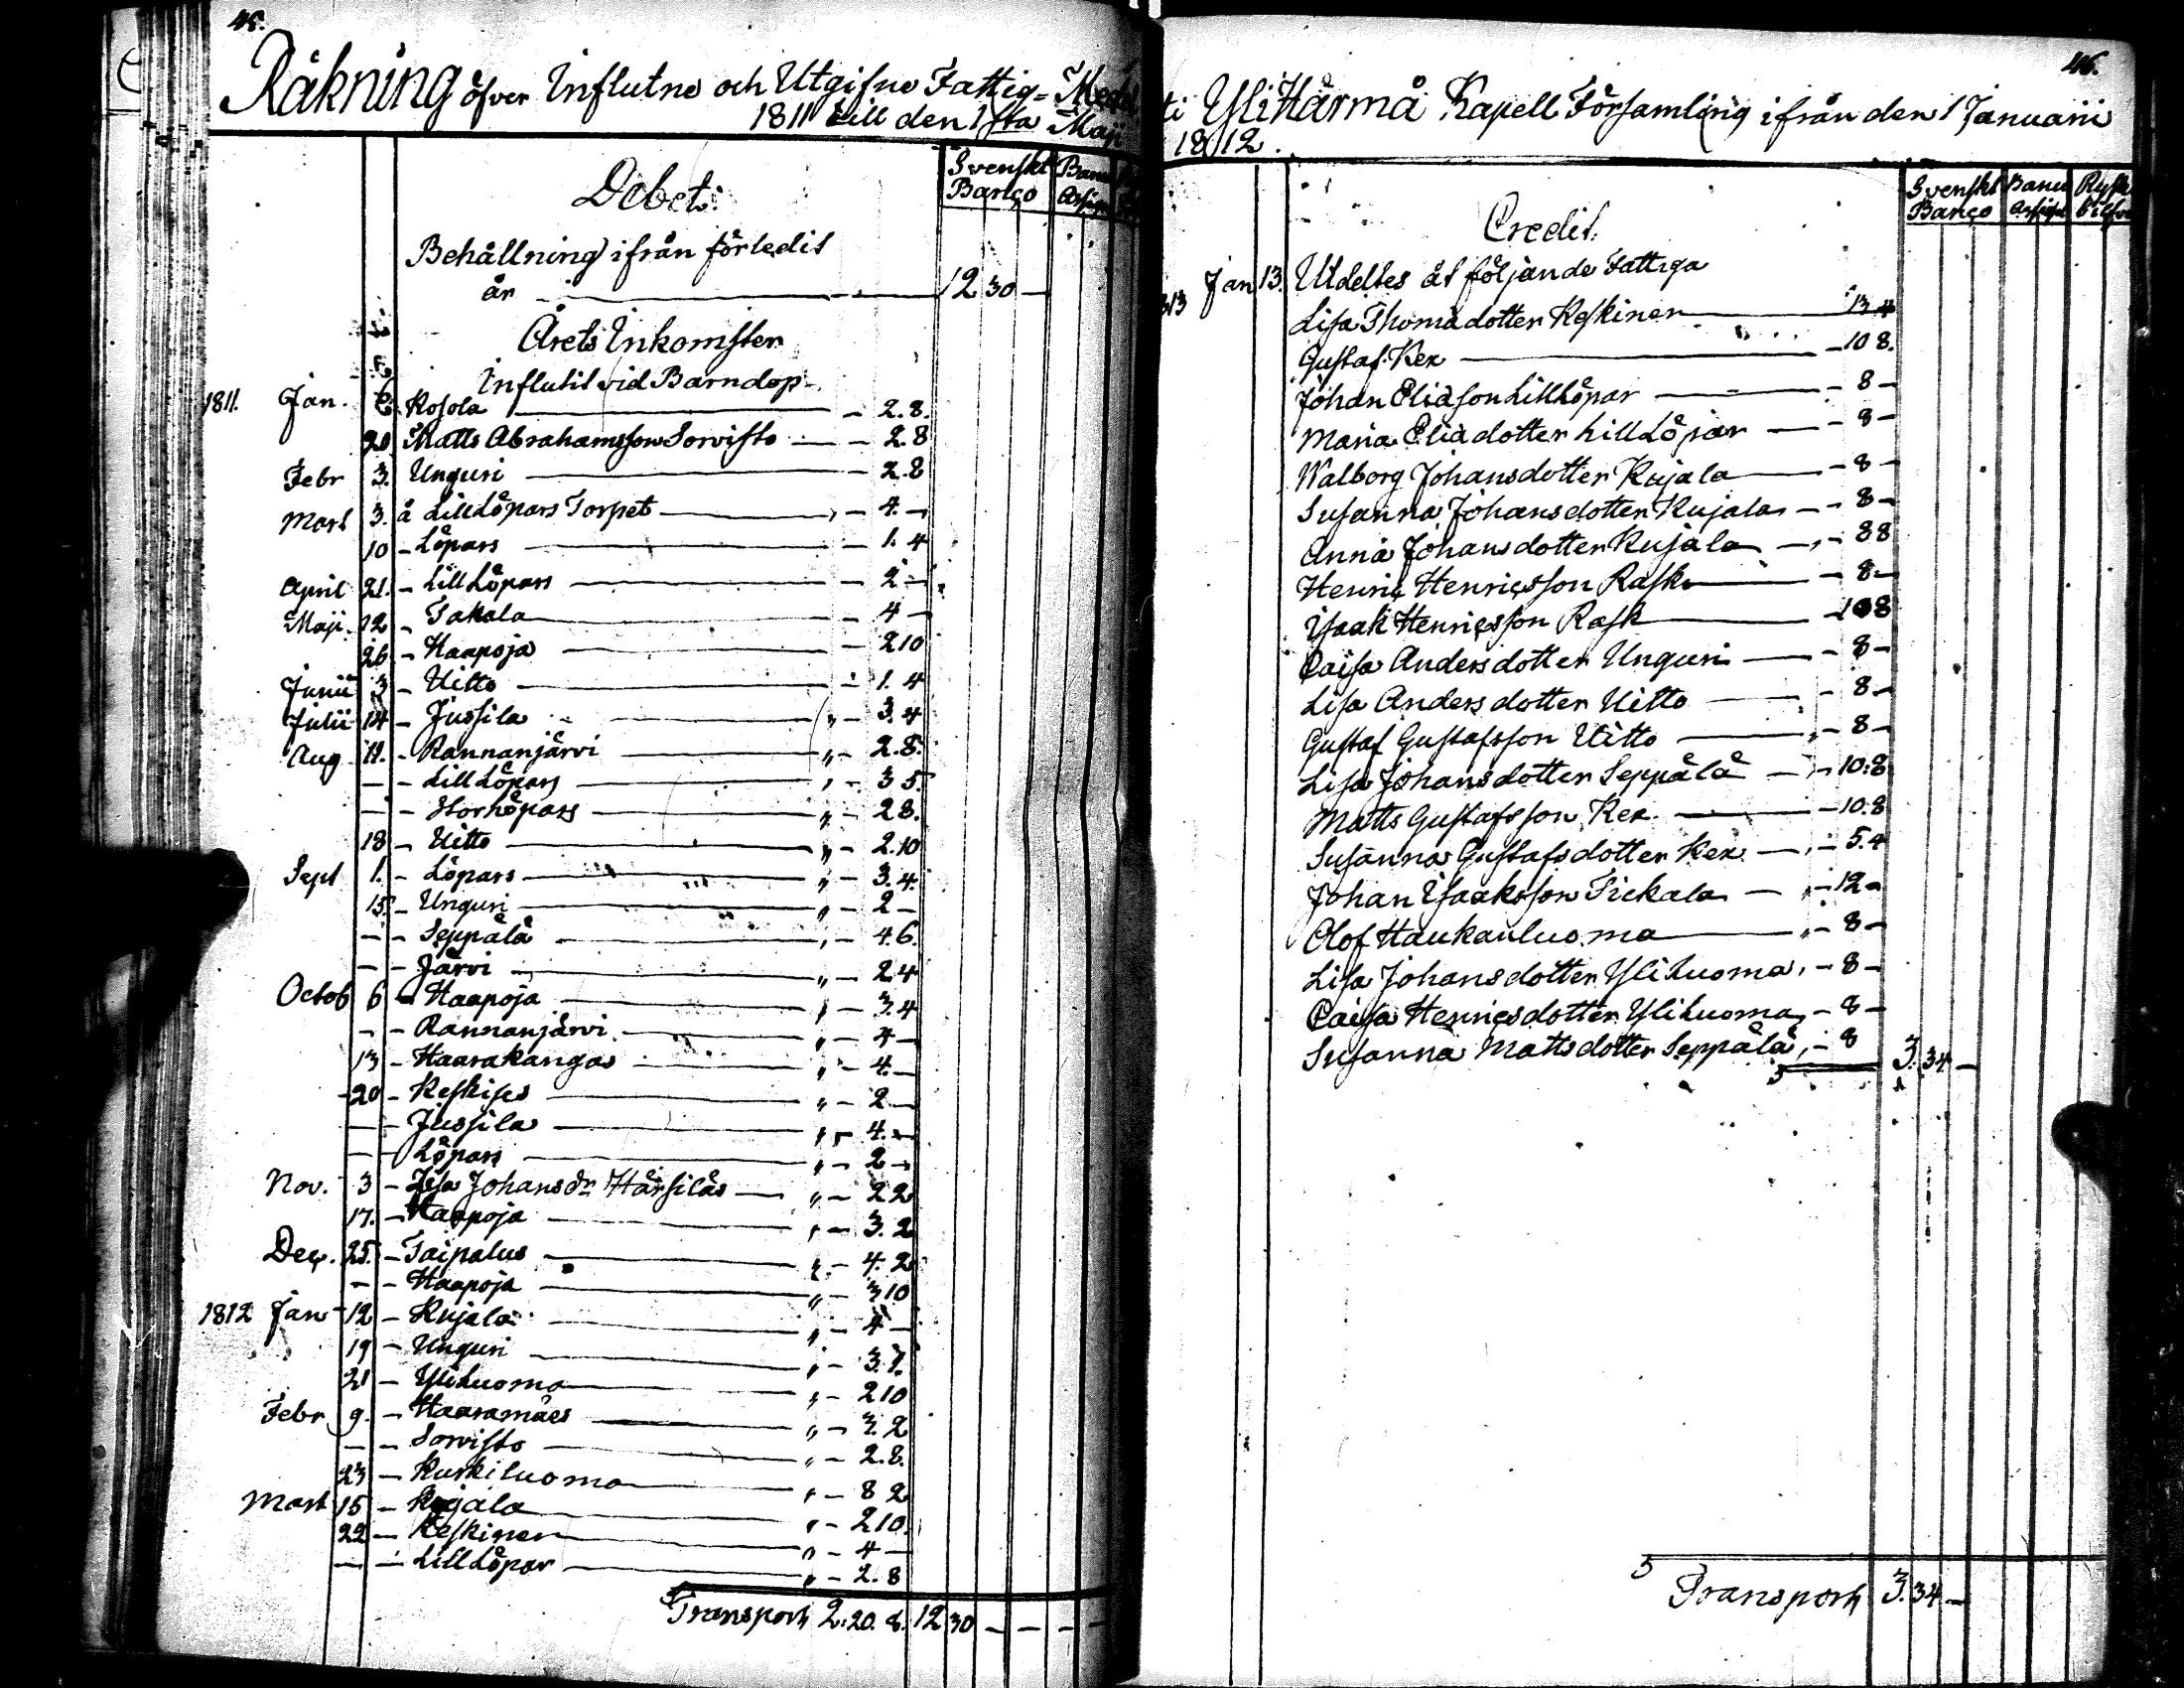 45.
Räkning öfver Influtne och Utgifne Fattig-Medel
1811 till den 1sta Maji
Svenskt Banco
Debet:
Behållning ifrån förledit
år — 12 30 —
Årets Inkomster
Influtit vid Barndop
1811. Jan. 6. Kosola — 2.8.
20 Matts Abrahamsson Sorvisto — 2.8
Febr 3. Unguri — 2.8
Mart 3. å LillLöpars Torpet — 4 —
10 - Löpars — 1. 4
April 21. - LillLöpars — 2 —
Maji. 12 - Takala — 4 —
26 - Haapoja — 2 10
Junii 3 - Uitto — 1. 4
Julii 14 - Jussila „ — 3. 4
Aug 11. - Rannanjärvi „ — 2.8.
— - LillLöpars „ — 3 5.
— - Storlöpars „ — 2 8.
18 - Uitto „ — 2.10
Sept 1. - Löpars „ — 3. 4.
15. - Unguri „ — 2 —
— - Seppälä „ — 4.6.
— - Järvi „ — 2.4
Octob 6 - Haapoja „ — 3.4
— - Rannanjärvi „ — 4 —
13 - Haarakangas „ — 4. —
20 - Keskises „ — 2 —
— - Jussila „ — 4. —
— - Löpars „ — 2 —
Nov. 3 - Lisa Johansdr Härsilas „ — 2 2
17. - Haapoja „ — 3. 2
Dec. 25. - Taipalus „ — 4. 2
— - Haapoja „ — 3 10
1812 Jan 12 - Kujala „ — 4 —
19 - Unguri „ — 3.7.
21 - Yliluoma „ — 2 10
Febr 9. - Haaramäes „ — 3. 2
— - Sorvisto „ — 2.8.
23 - Kurkiluoma „ — 8 2
Mart 15 - Kujala „ — 2 10.
22 - Keskinen „ — 4 —
— - LillLöpar „ — 2. 8
Transport 2. 20. 8. 12 30 — — — —
46.
i YliHärmä Kapell Församling ifrån den 1 Januarii
1812.
Svenskt Banco
Credit:
Jan 13. Utdeltes åt följande Fattiga
Lisa Thomadotter Keskinen — 13 4
Gustaf Kex — 10 8.
Johan Eliasson LillLöpar — 8 —
Maria Eliadotter LillLöpar — 8 —
Walborg Johansdotter Kujala — 8 —
Susanna Johansdotter Kujala — 8 —
Anna Johansdotter Kujala — 8 8
Henric Henricsson Rask — 8 —
Isaak Henricsson Rask — 10 8
Caisa Andersdotter Unguri — 8 —
Lisa Andersdotter Uitto — 8 —
Gustaf Gustafsson Uitto — 8 —
Lisa Johansdotter Seppälä — 10: 8
Matts Gustafsson Kex — 10. 8
Susanna Gustafsdotter Kex — 5. 4
Johan Isaaksson Tickala — 12 —
Olof Haukanluoma — 8 —
Lisa Johansdotter Yliluoma — 8 —
Caisa Henricsdotter Yliluoma — 8 —
Susanna Mattsdotter Seppälä — 8 3. 34 —
Transport 3. 34 —